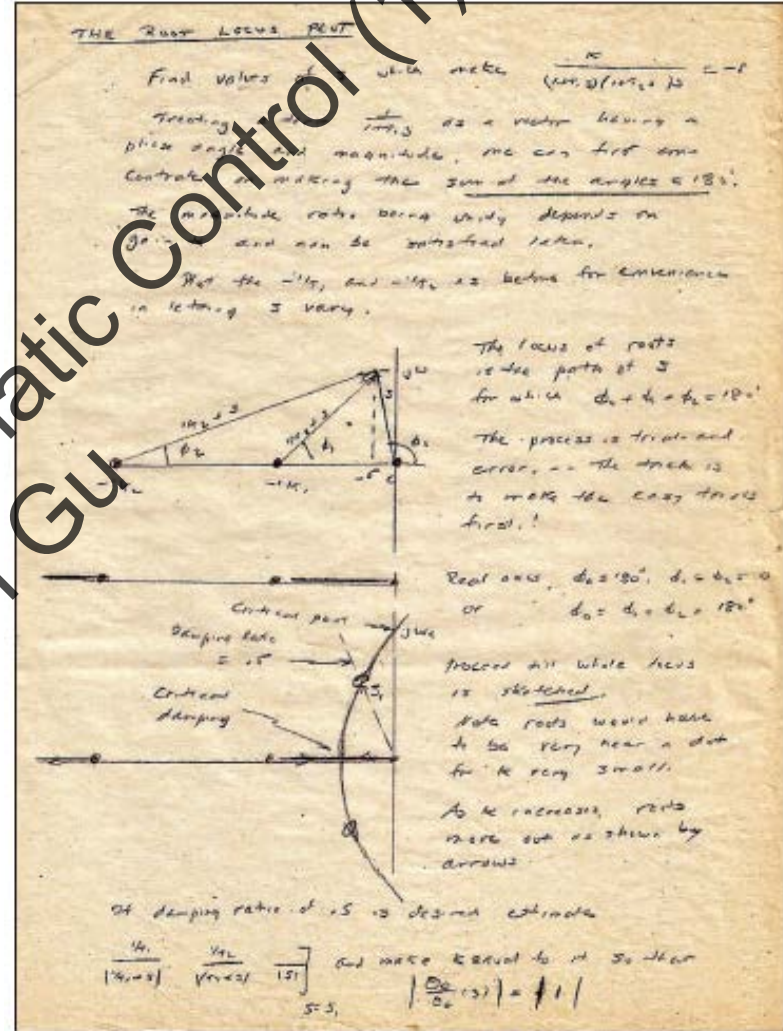 THE ROOT LOCUS PLOT
Find values of s which make K / (1+T₁s)(1+T₂s)s = -1
Treating 1/1+T₁s as a vector having a
phase angle and magnitude, one can first con-
centrate on making the sum of the angles = 180°.
The magnitude ratio being unity depends on
gain and can be satisfied later.
Plot the -1/T₁ and -1/T₂ as before for convenience
in letting s vary.
The locus of roots
is the path of s
for which φ₀ + φ₁ + φ₂ = 180°
The process is trial and
error, -- The trick is
to make the easy trials
first.!
jω
1/T₂ + s
1/T₁ + s
s
φ₂
φ₁
φ₀
-1/T₂
-1/T₁
Real axis, φ₀ = 180°, φ₁ = φ₂ = 0
or φ₀ = φ₁ = φ₂ = 180°
Critical point
Damping ratio
= .5
Critical
damping
jω
S₁
Proceed till whole locus
is sketched.
Note roots would have
to be very near a dot
for K very small.
As K increases, roots
move out as shown by
arrows
If damping ratio of .5 is desired estimate
1/T₁ / |1/T₁+s| 1/T₂ / |1/T₂+s| 1 / |s| ] s=s₁ and make K equal to it so that
(s)| = |1|
atic Control (1),
Gu